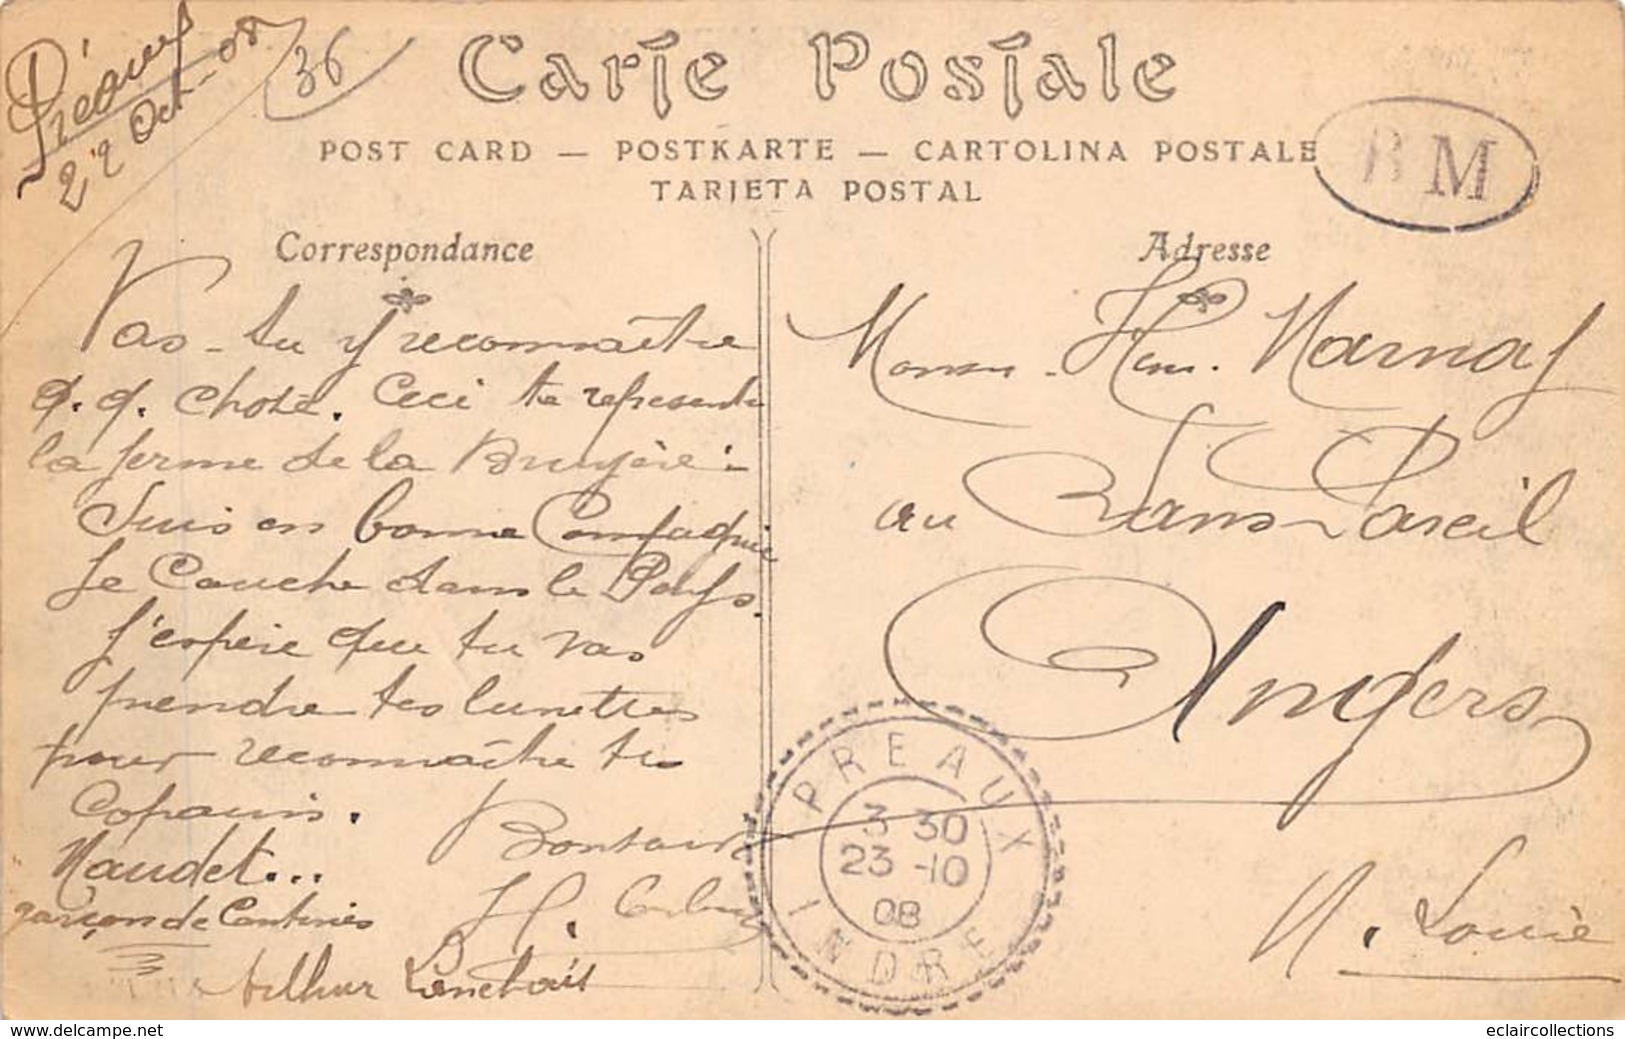 Préaux
22 Oct - 08
36
Carte Postale
POST CARD — POSTKARTE — CARTOLINA POSTALE
TARJETA POSTAL
BM
Correspondance
Adresse
Vas-tu y reconnaître
q. q. chose. Ceci te represente
la ferme de la Bruyère :
Suis en bonne Compagnie
Je Couche dans le Pays.
J'espère que tu vas
prendre tes lunettes
pour reconnaître tes
Copains.
Naudet...
garçon de
H.
Arthur
Henri
au Sans Pareil
Angers
M. Loire
PREAUX
3 30
23 -10
08
INDRE
www.delcampe.net
eclaircollections